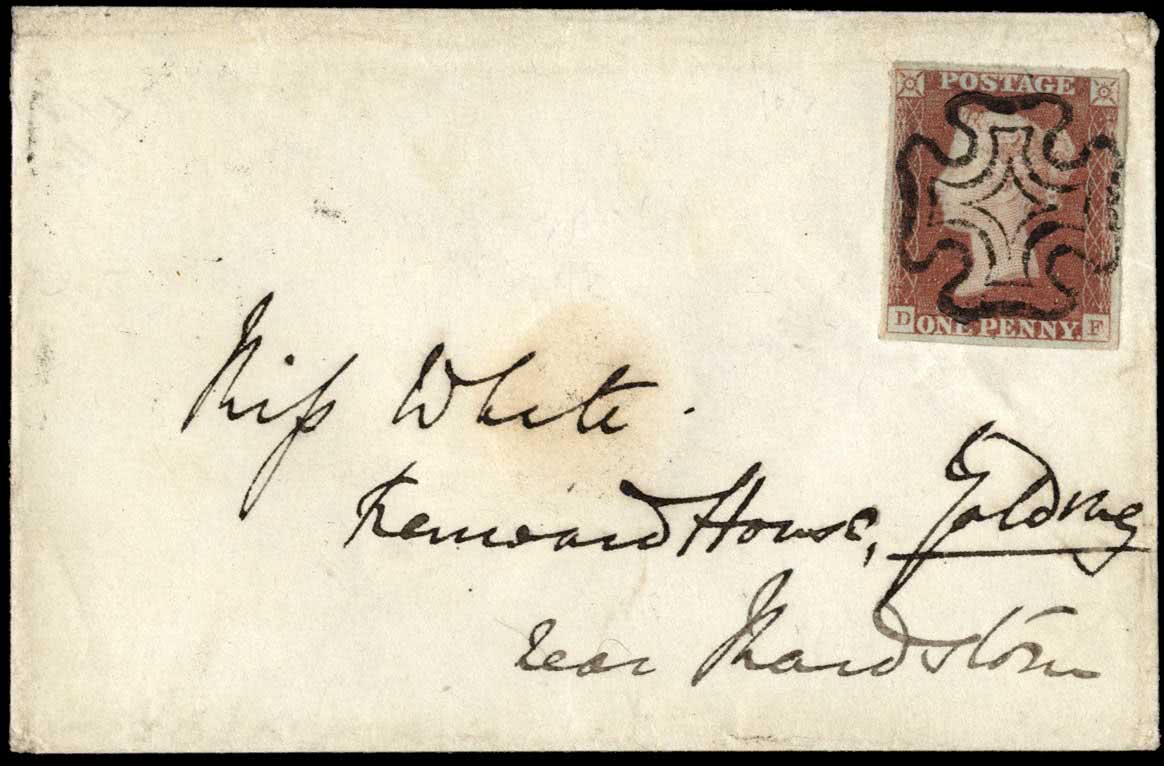 POSTAGE
D ONE PENNY. F
Miss White.
House, Yalding
near Maidstone